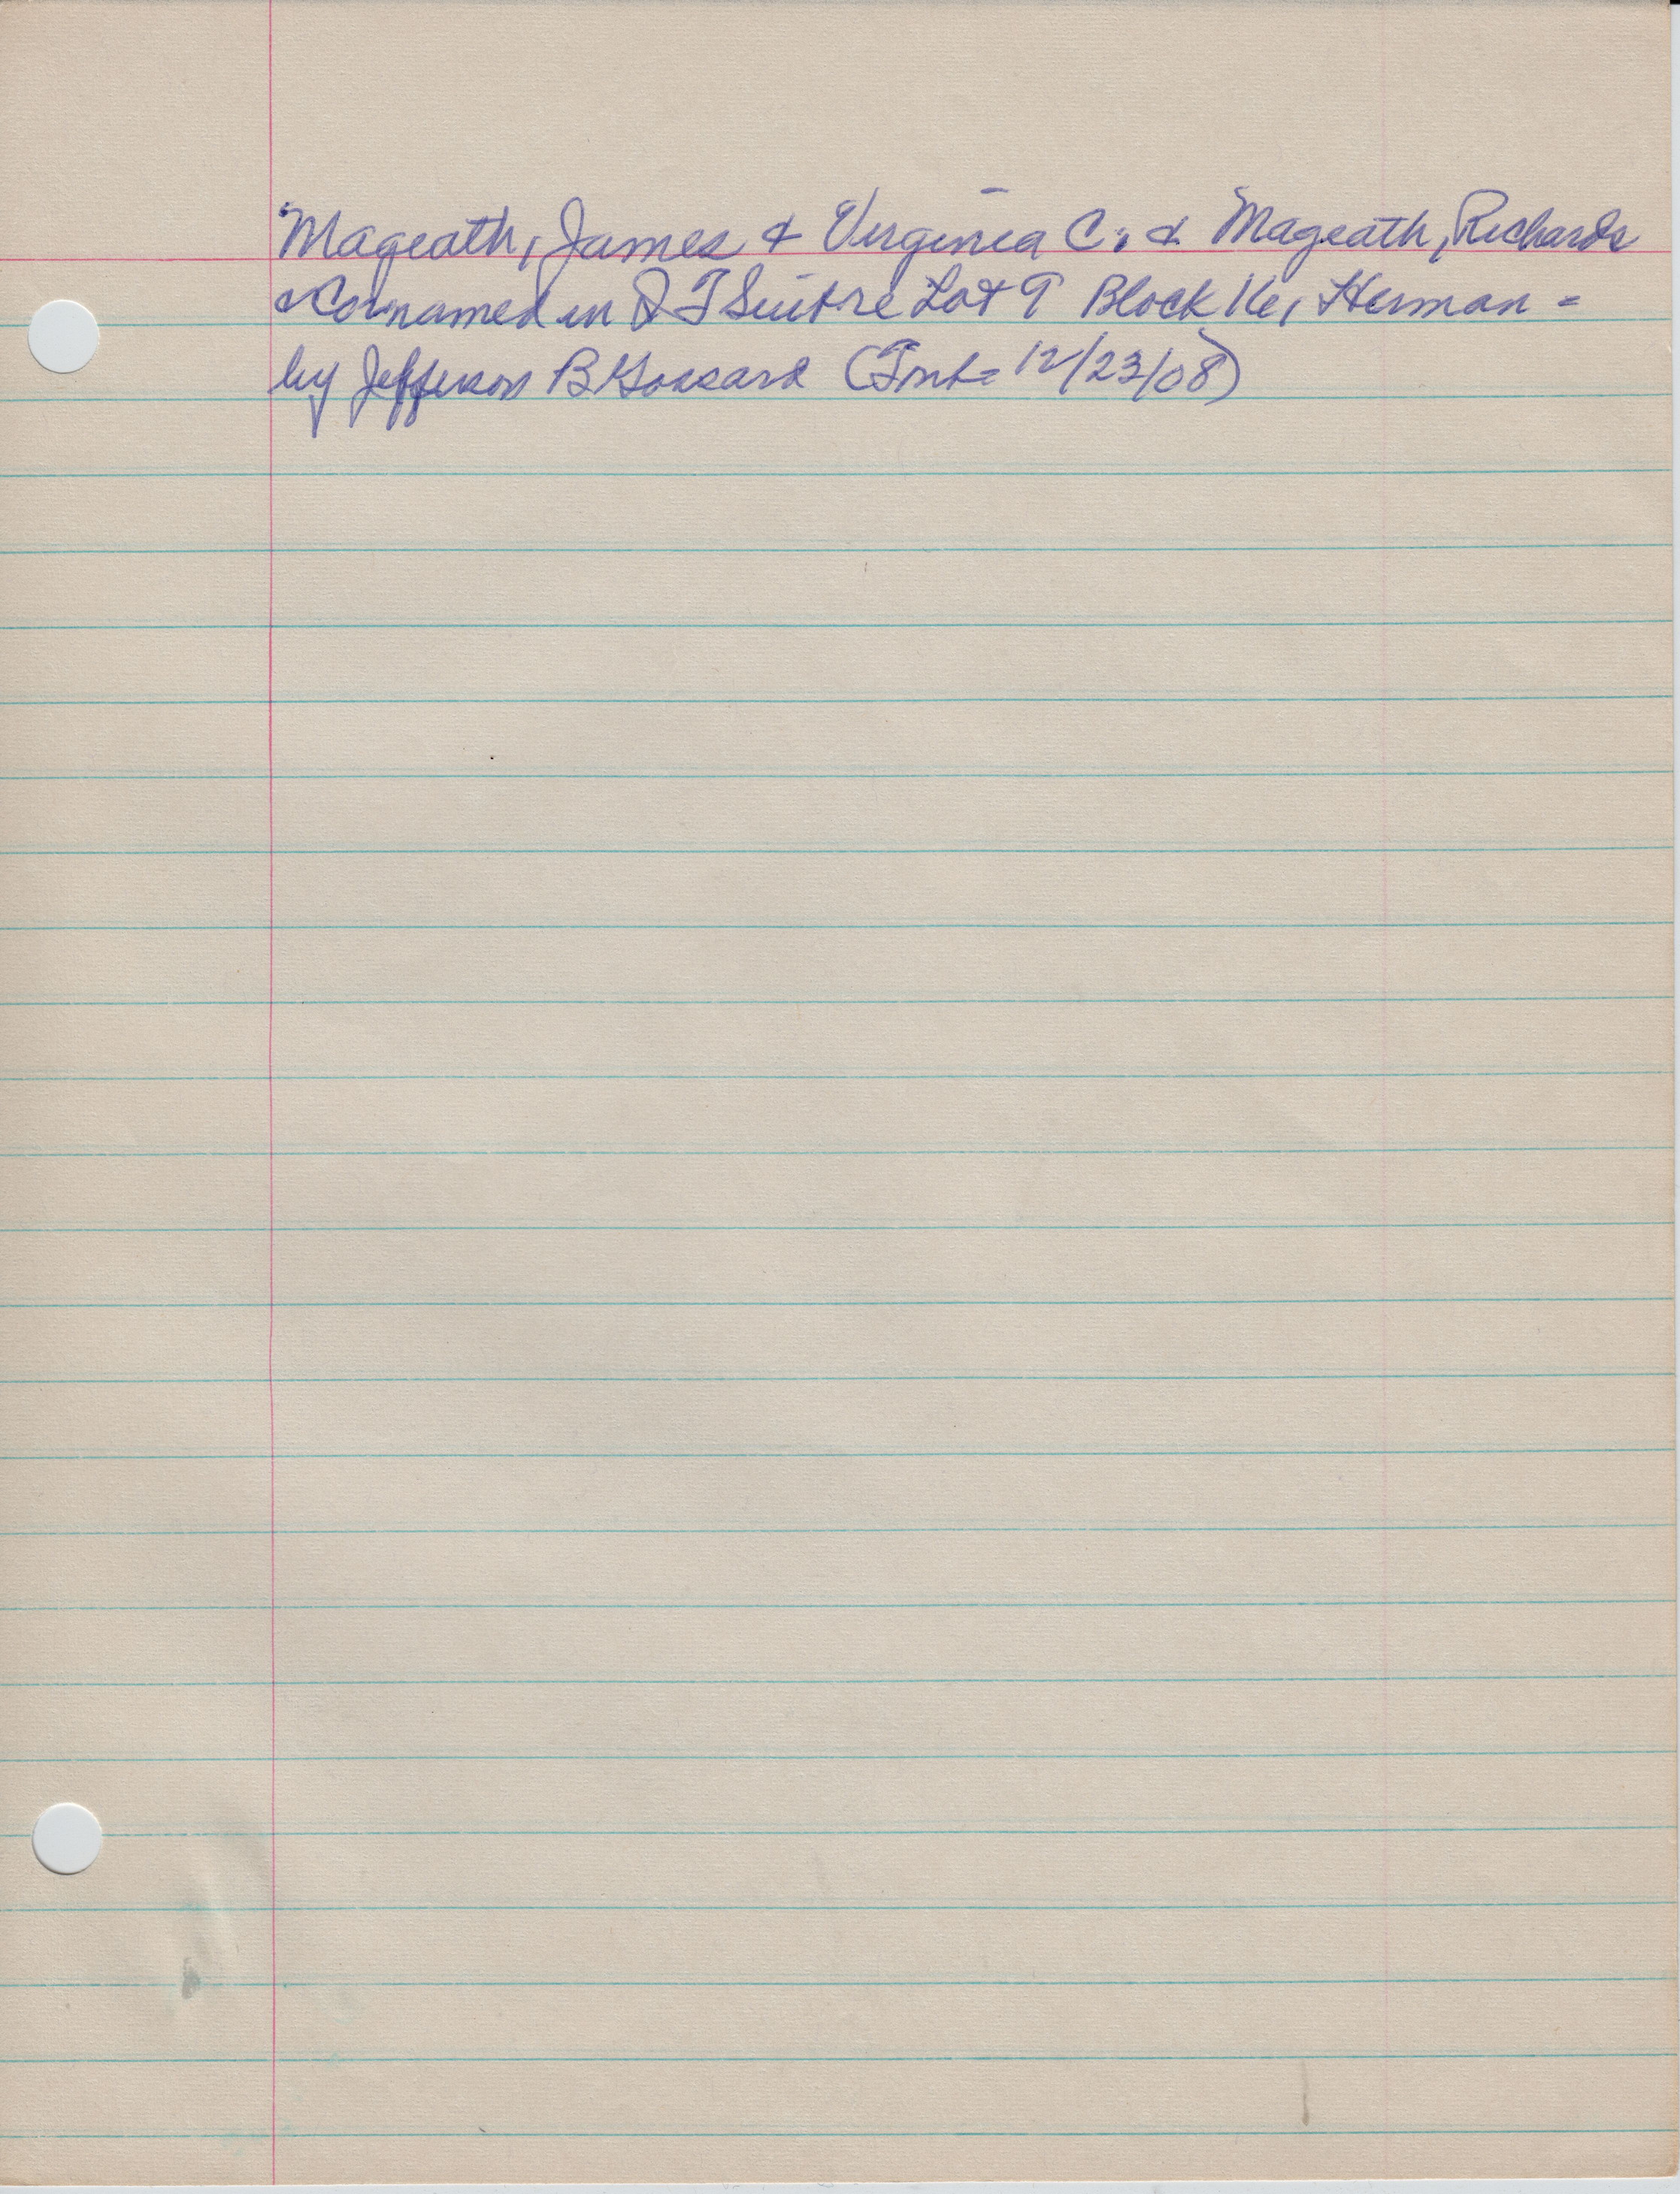 Mageath, James & Virginia C. & Mageath, Richards
& Co named in Q T Suit re Lot 9 Block 16, Herman -
by Jefferson B Gossard (Tmb= 12/23/08)